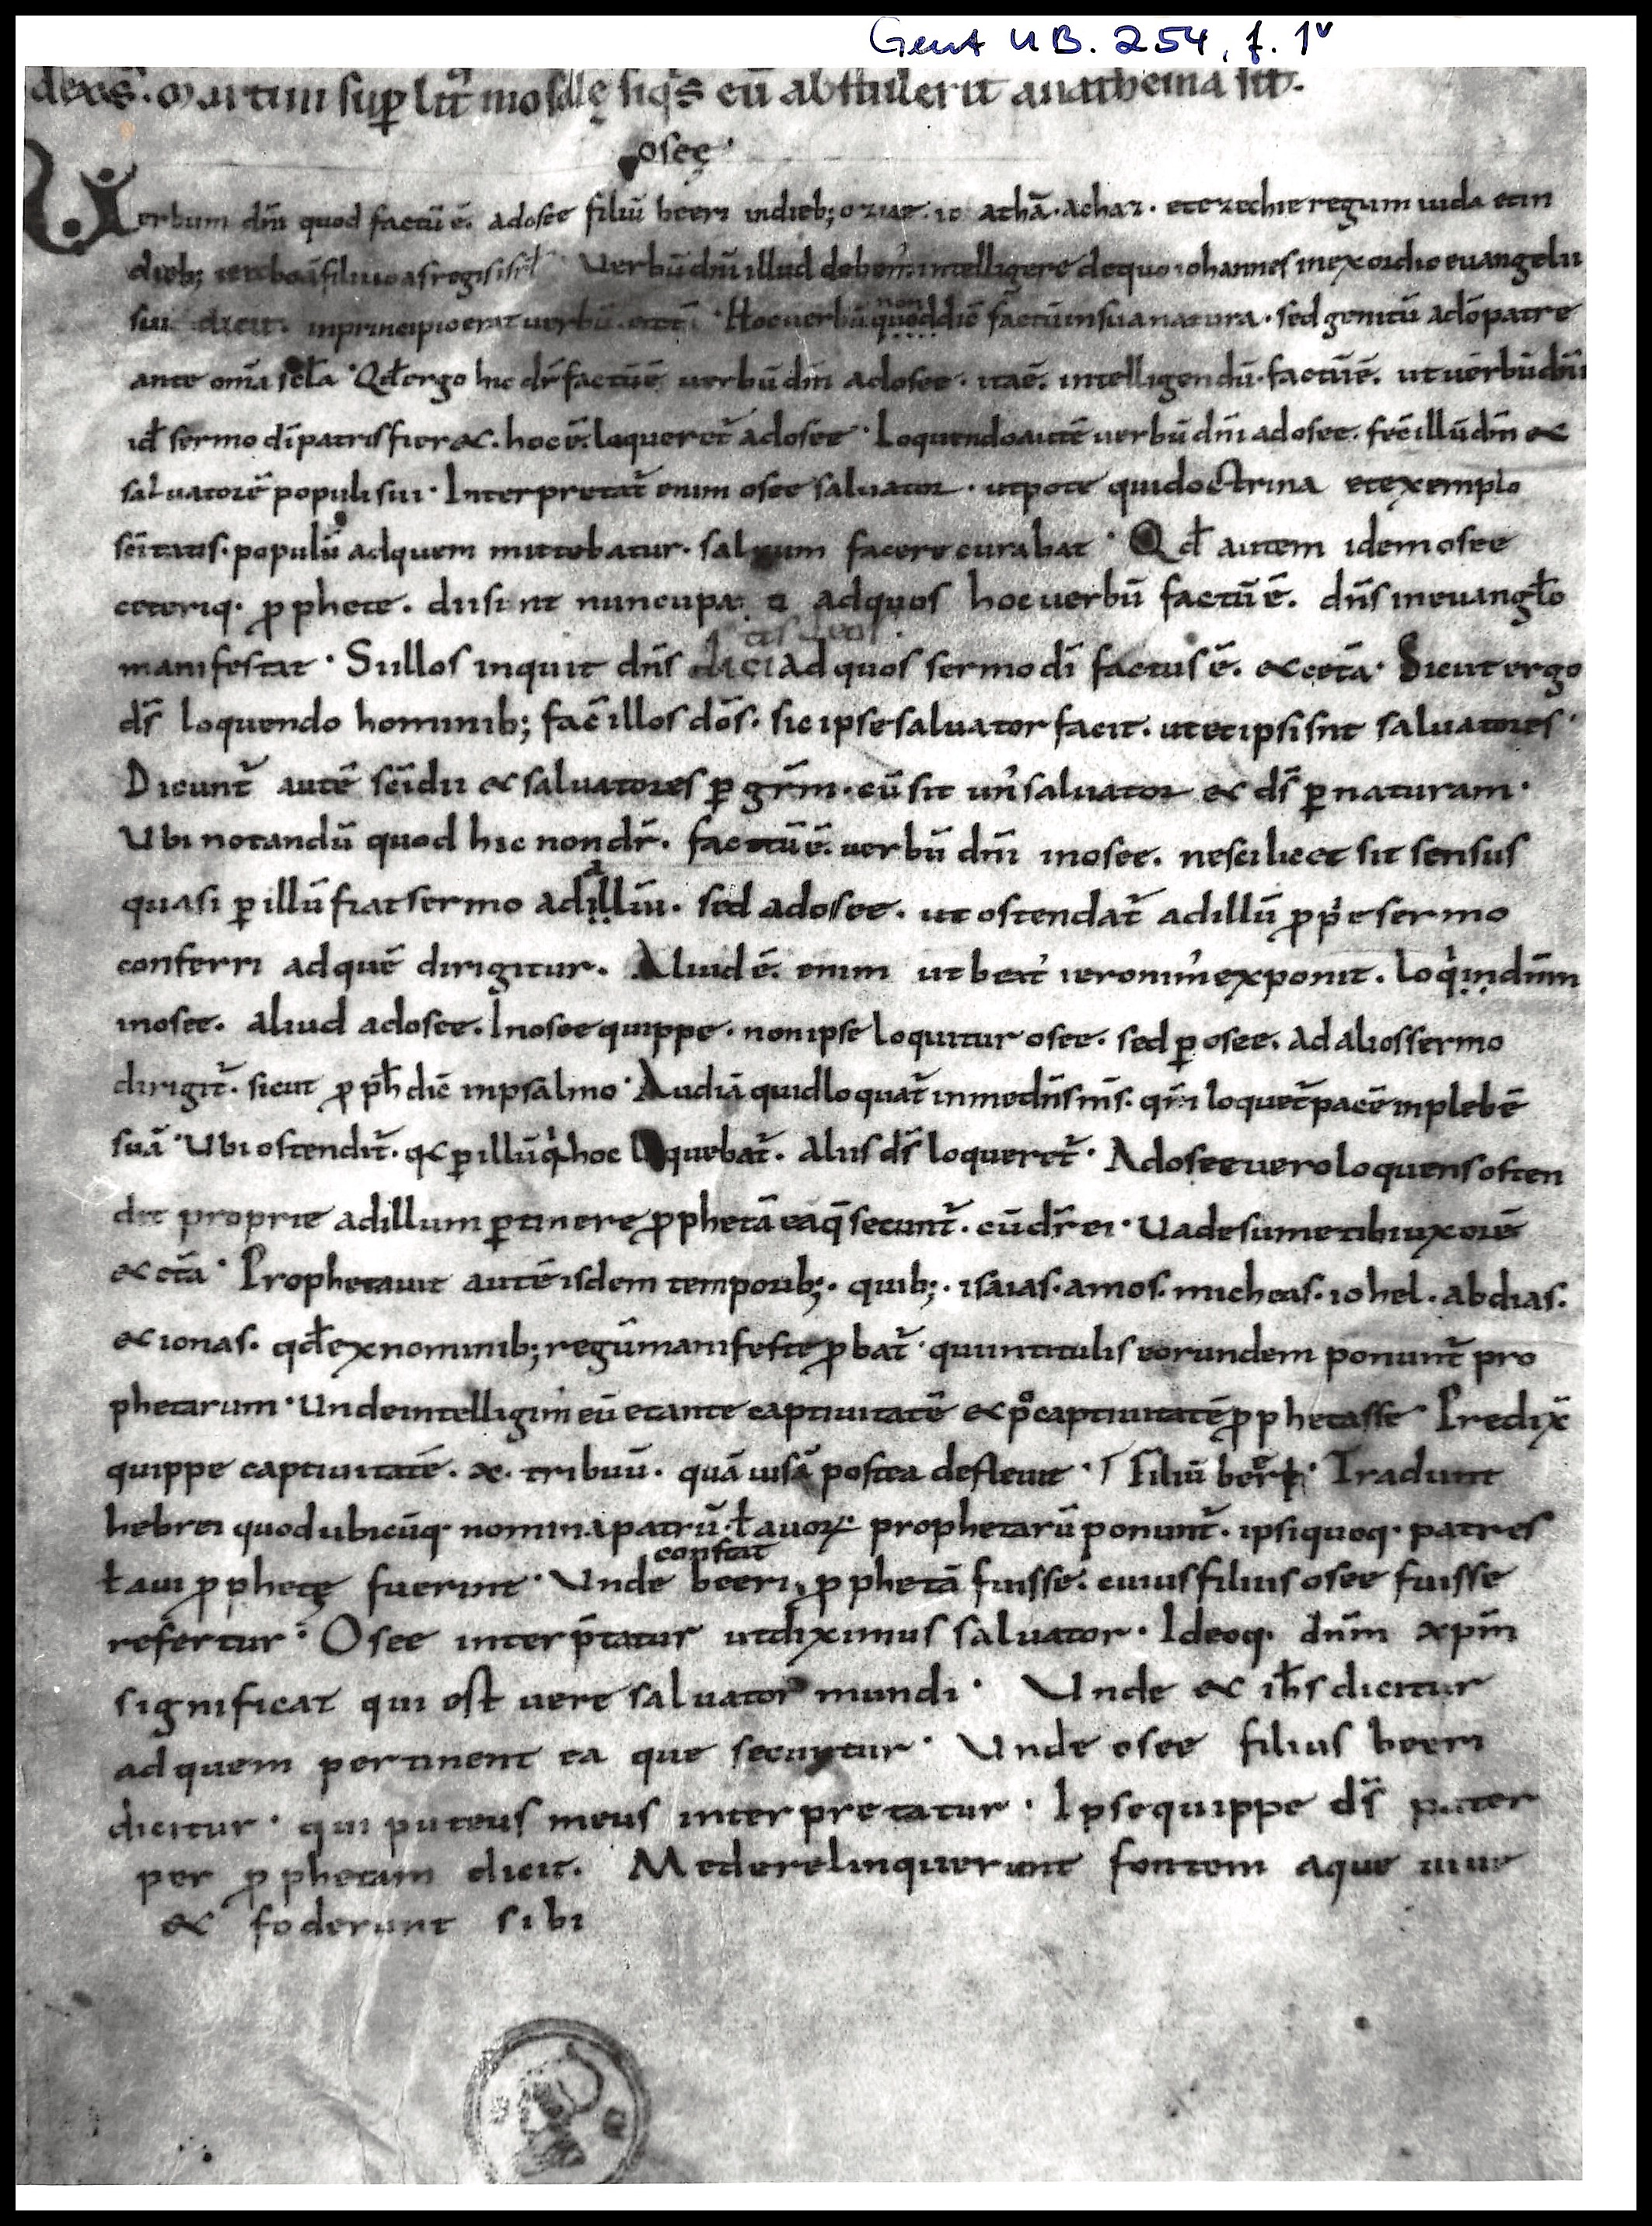 Gent UB. 254, f. 1v
dexs. Martini sup lit mosellę siqs eū abstulerit anathema sit.
oseę
Uerbum dn̄i quod factū ē. adosee filiū beeri indieb; oziae. io athā. achaz. etezechie regum iuda etin
dieb; ieroboāfiliioasregisisrł Uerbūdn̄i illud debem᾽intelligere dequo iohannes inexordio euangelii
sui dicit. inprincipioerat uerbū. Hocuerbū non quoddiē factūinsuanatura. sed genitū adōpatre
ante om̄a sełła Qđergo hic dr̄ factūē uerbū dn̄i adosee. itaē. intelligendū. factūē. utuerbūdn̄i
iđ sermo dīpatris fier&. hocē. loqueret̄ adosee Loquendoautē uerbū dn̄i adosee. fec̄ illū dn̄m &
saluatorē populi sui. Interpretat̄ enim osee saluator. utpote quidoctrina etexemplo
sc̄itatis. populū adquem mittebatur. saluum facere curabat Qđ autem idemosee
ceteriq. pphete. diisint nuncupa adquos hocuerbū factū ē. dn̄s ineuangło
manifestat Siillos inquit dn̄s dici adquos sermo dī factus ē. & cetā Sicut ergo
ds̄ loquendo hominib; fac̄ illos dōs. sic ipsesaluator facit. utetipsisint saluatores
Dicunt̄ autē sc̄idii & saluatores p gr̄m. cū sit un᾽saluator & ds̄ p naturam.
Ubi notandū quod hic nondr̄. factū ē. uerbū dn̄i inosee. nescilicet sit sensus
quasi p illū fiatsermo adillūm. sed adosee. ut ostendat̄ adillū pp̄e sermo
conferri adquē dirigitur. Aliud ē. enim ut beat᾽ ieronim᾽exponit. loqindn̄m
inosee. aliud adosee. Inosee quippe. nonipse loquitur osee. sed p osee. ad aliossermo
dirigit̄. sicut p pħ dic̄ inpsalmo Audiā quidloquat̄ inmedn̄sn̄s. qm̄ loquet̄pacē inplebē
suā Ubiostendit̄. q& p illūqhoc loquebat̄. alius ds̄ loqueret̄ Adoseeuero loquensosten
dit proprie adillum ptinere pphetā eaq̄ secunt̄. cū dr̄ ei Uadesumetibiuxorē
& cetā Prophetauit autē isdem temporib;. quib;. isaias. amos. micheas. iohel. abdias.
& ionas. qđexnominib; regūmanifeste pbat̄ quiintitulis eorundem ponunt̄ pro
phetarum Undeintelligim᾽ eū etante captiuitatē & p᷒captiuitatē pphetasse Predix̄
quippe captiuitatē. x. tribuū. quā uisā postea defleuit Filiū beeri Tradunt
hebrei quodubicūq nomina patrū ł auoꝝ. prophetarū ponunt̄. ipsiquoq patres
constat
ł aui pphetę fuerint Unde beeri, pphetā fuisse. cuiusfilius osee fuisse
refertur Osee interp̄tatur utdiximus saluator. Ideoq dn̄m xpm̄
significat qui est uere saluator mundi Unde & iħs dicitur
adquem pertinent ea que secuntur Unde osee filius beeri
dicitur qui puteus meus interpretatur. Ipsequippe ds̄ pater
per pphetam dicit. Mederelinquerunt fontem aque uiue
& foderunt sibi